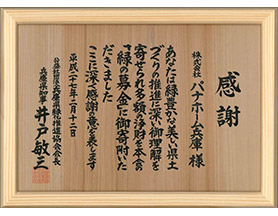 感謝
株式会社
パナホーム兵庫 様
あなたは緑豊かな美しい県土
づくりの推進に深い御理解を
寄せられ多額の浄財を本会の
「緑の募金」に御寄附いた
だきました
ここに深く感謝の意を表します
平成二十七年二月十二日
公益社団法人兵庫県緑化推進協会会長
兵庫県知事 井戸敏三